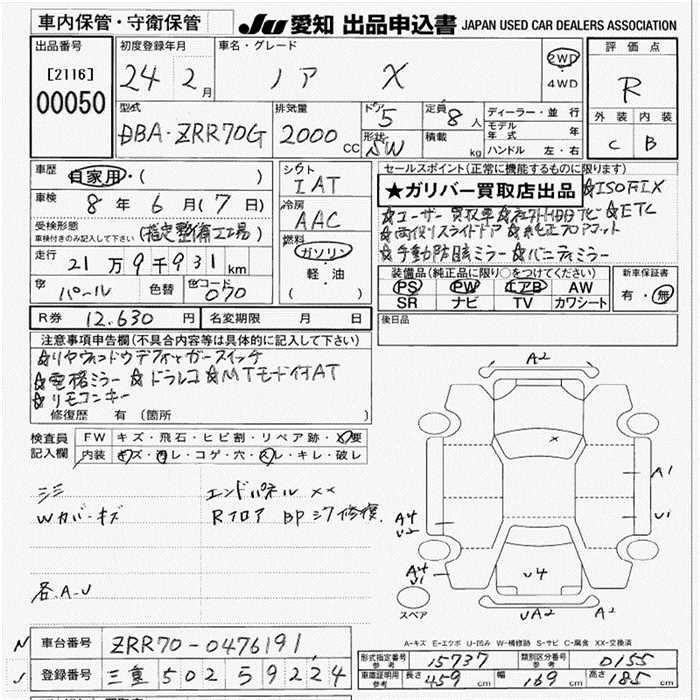 車内保管・守衛保管
JU 愛知 出品申込書 JAPAN USED CAR DEALERS ASSOCIATION
出品番号
[2116]
00050
初度登録年月
24 2月
車名・グレード
ノア X
2WD
4WD
評価点
R
外装 内装
C B
型式
DBA-ZRR70G
排気量
2000 CC
ドア
5
形状
SW
定員
8人
積載
kg
ディーラー・並行
モデル年式 年
ハンドル 左・右
車歴
自家用・( )
車検
8年 6月(7日)
受検形態
車検付きのみ記入して下さい
(指定整備工場)
走行
21万9千931km
色
パール
色替
色コード
070
シフト
IAT
冷房
AAC
燃料
ガソリン
軽・油
( )
セールスポイント(正常に機能するものに限ります)
★ガリバー買取店出品 ☆ISOFIX
☆ユーザー買取車 ☆社外HDDナビ ☆ETC
☆両側スライドドア ☆純正フロアマット
☆手動防眩ミラー ☆バニティミラー
装備品(純正品に限り○をつけてください)
PS PW エアB AW
SR ナビ TV カワシート
新車保証書
有・無
R券 12,630円
名変期限 月 日
後日品
注意事項申告欄(不具合内容等は具体的に記入して下さい)
☆リヤウィンドウデフォッガースイッチ
☆電格ミラー ☆ドラレコ ☆MTモード付AT
☆リモコンキー
修復歴 有 (箇所 )
検査員記入欄
FW キズ・飛石・ヒビ割・リペア跡・X要
内装 キズ・汚レ・コゲ・穴・スレ・キレ・破レ
ミミ
Wカバーキズ
エンドパネル XX
Rフロア BPシワ修復
各A.U
A2
X
A1
U1
A4
U2
A4
U1
U4
UA2
A2
スペア
A-キズ E-エクボ U-凹み W-補修跡 S-サビ C-腐食 XX-交換済
N 車台番号 ZRR70-0476191
登録番号 三重 502 59224
形式指定番号 参考
15737
類別区分番号 参考
0155
車庫証明用 参考
長さ 459cm 幅 169cm 高さ 185cm